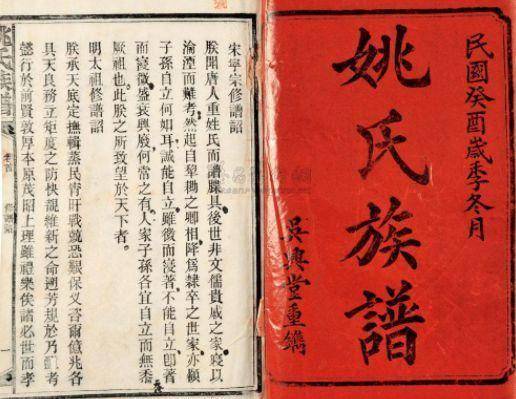 民國癸酉歲季冬月
姚氏族譜
吳興堂重鐫
宋寧宗修譜詔
朕聞唐人重姓氏而譜牒具後世非文儒貴戚之家寖以
淪湮而難考然起自犁鋤之卿相降爲隸卒之世家亦顧
子孫自立何如耳誠能自立雖微而寖著不能自立卽著
而寖微盛衰興廢何常之有人家子孫各宜自立而無忝
厥祖也此朕之所致望於天下者
明太祖修譜詔
朕承天底定撫輯蒸民胥旰戰兢恐艱保乂咨爾億兆各
具天良務立矩度之防快覩維新之命遡芳規於乃者
懿行於前賢敦厚本原茂昭上理雖禮樂俟諸必世而孝
姚氏族譜
卷首
一